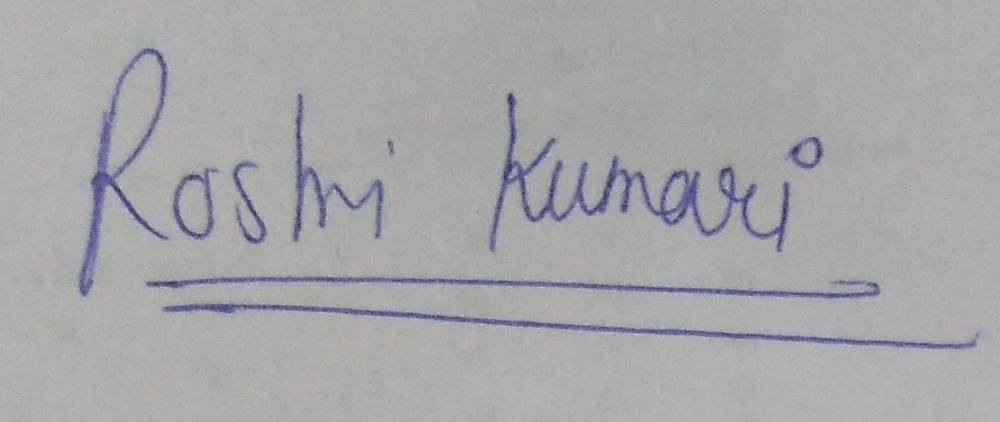 Roshni Kumari